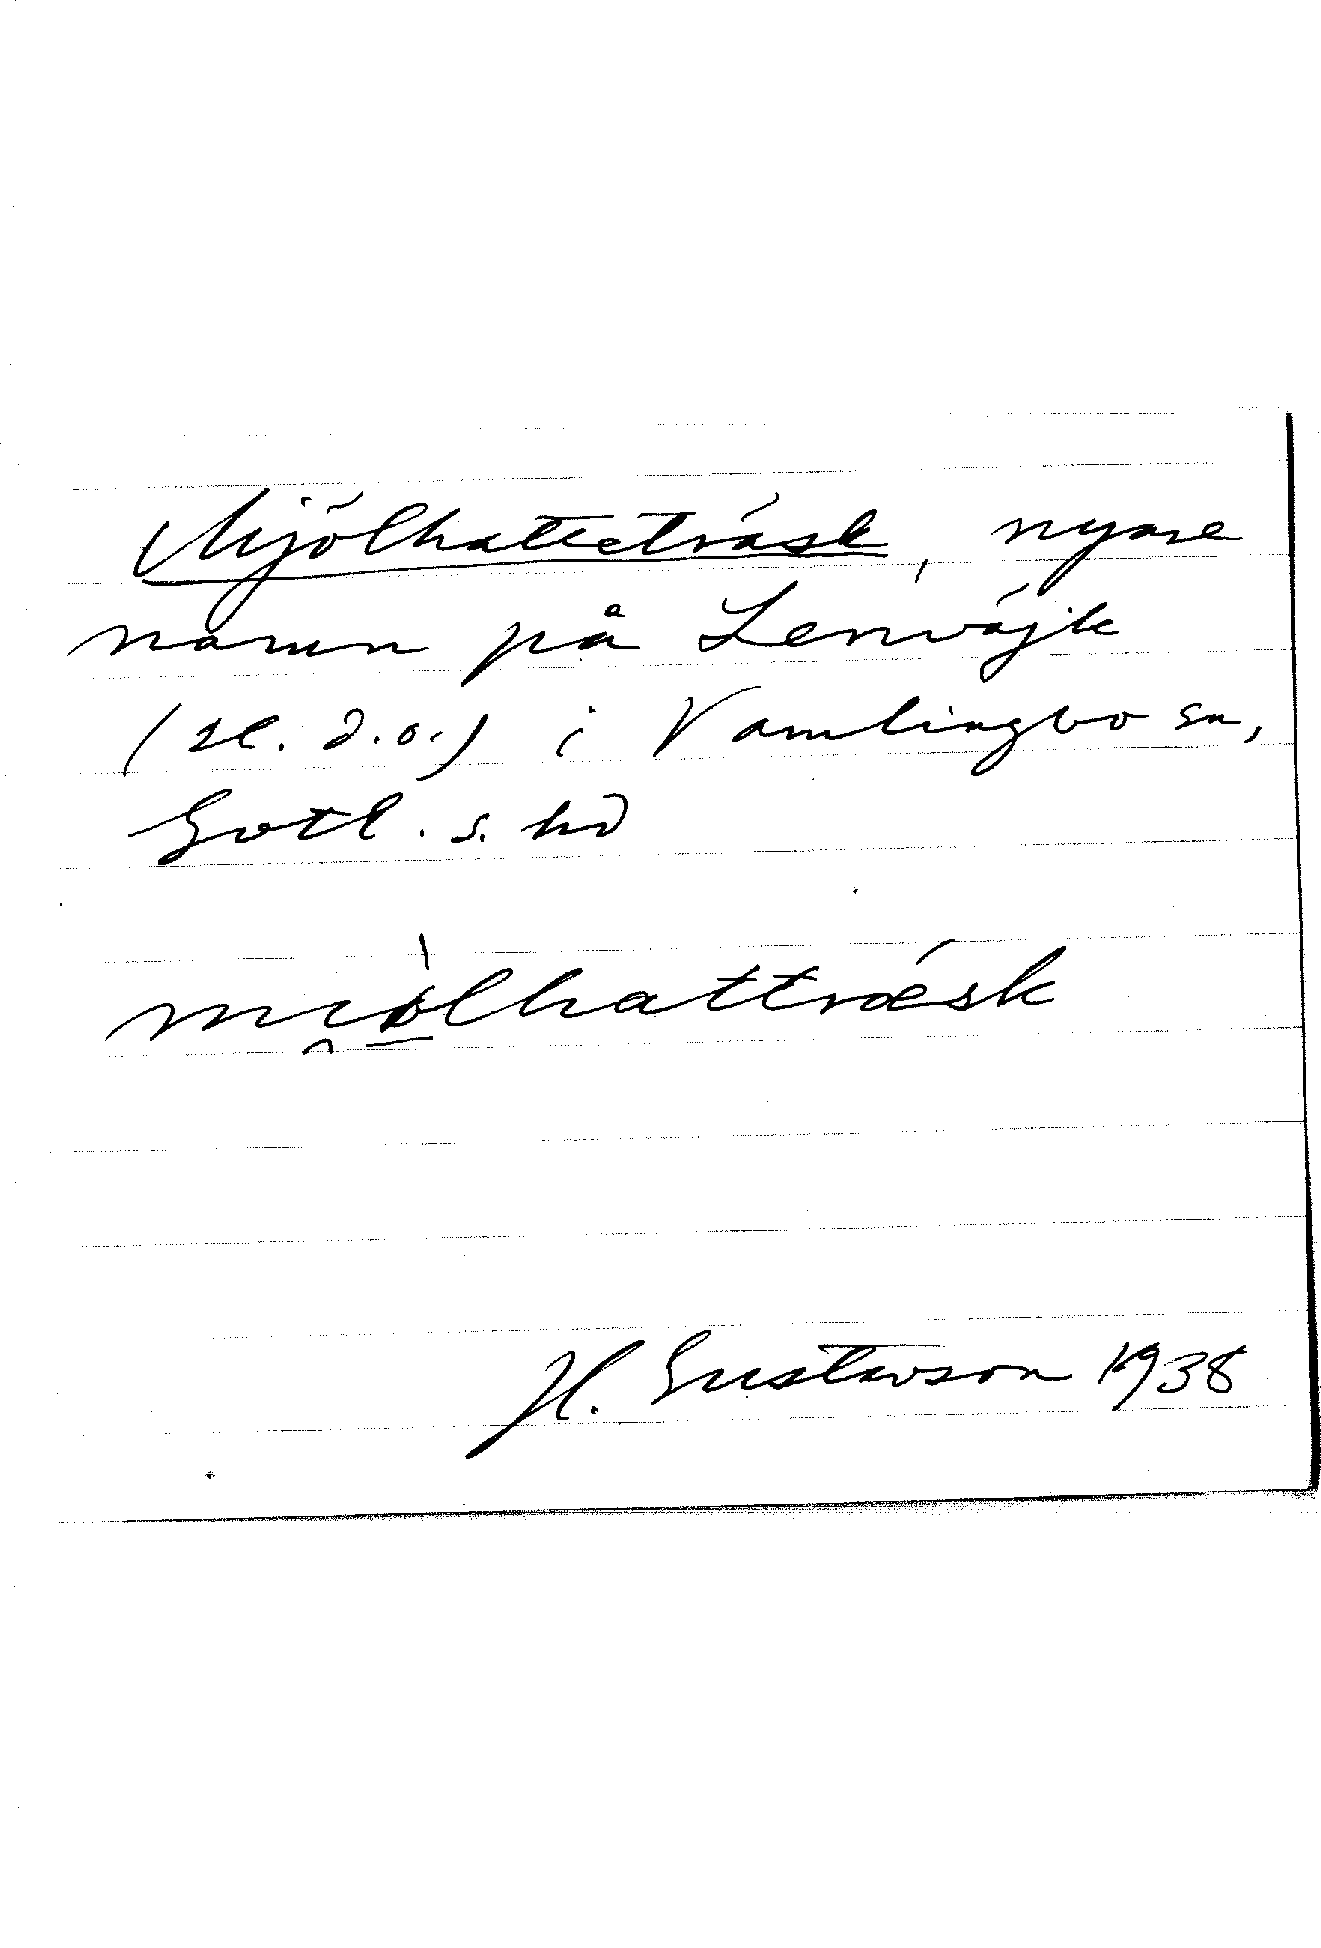 Mjölhatteträsk, nyare
namn på Lenväjk
(se. d.o.) i Vamlingbo sn,
Gotl. s. hd
mi̯ø̱lhattræsk
H. Gustavson 1938